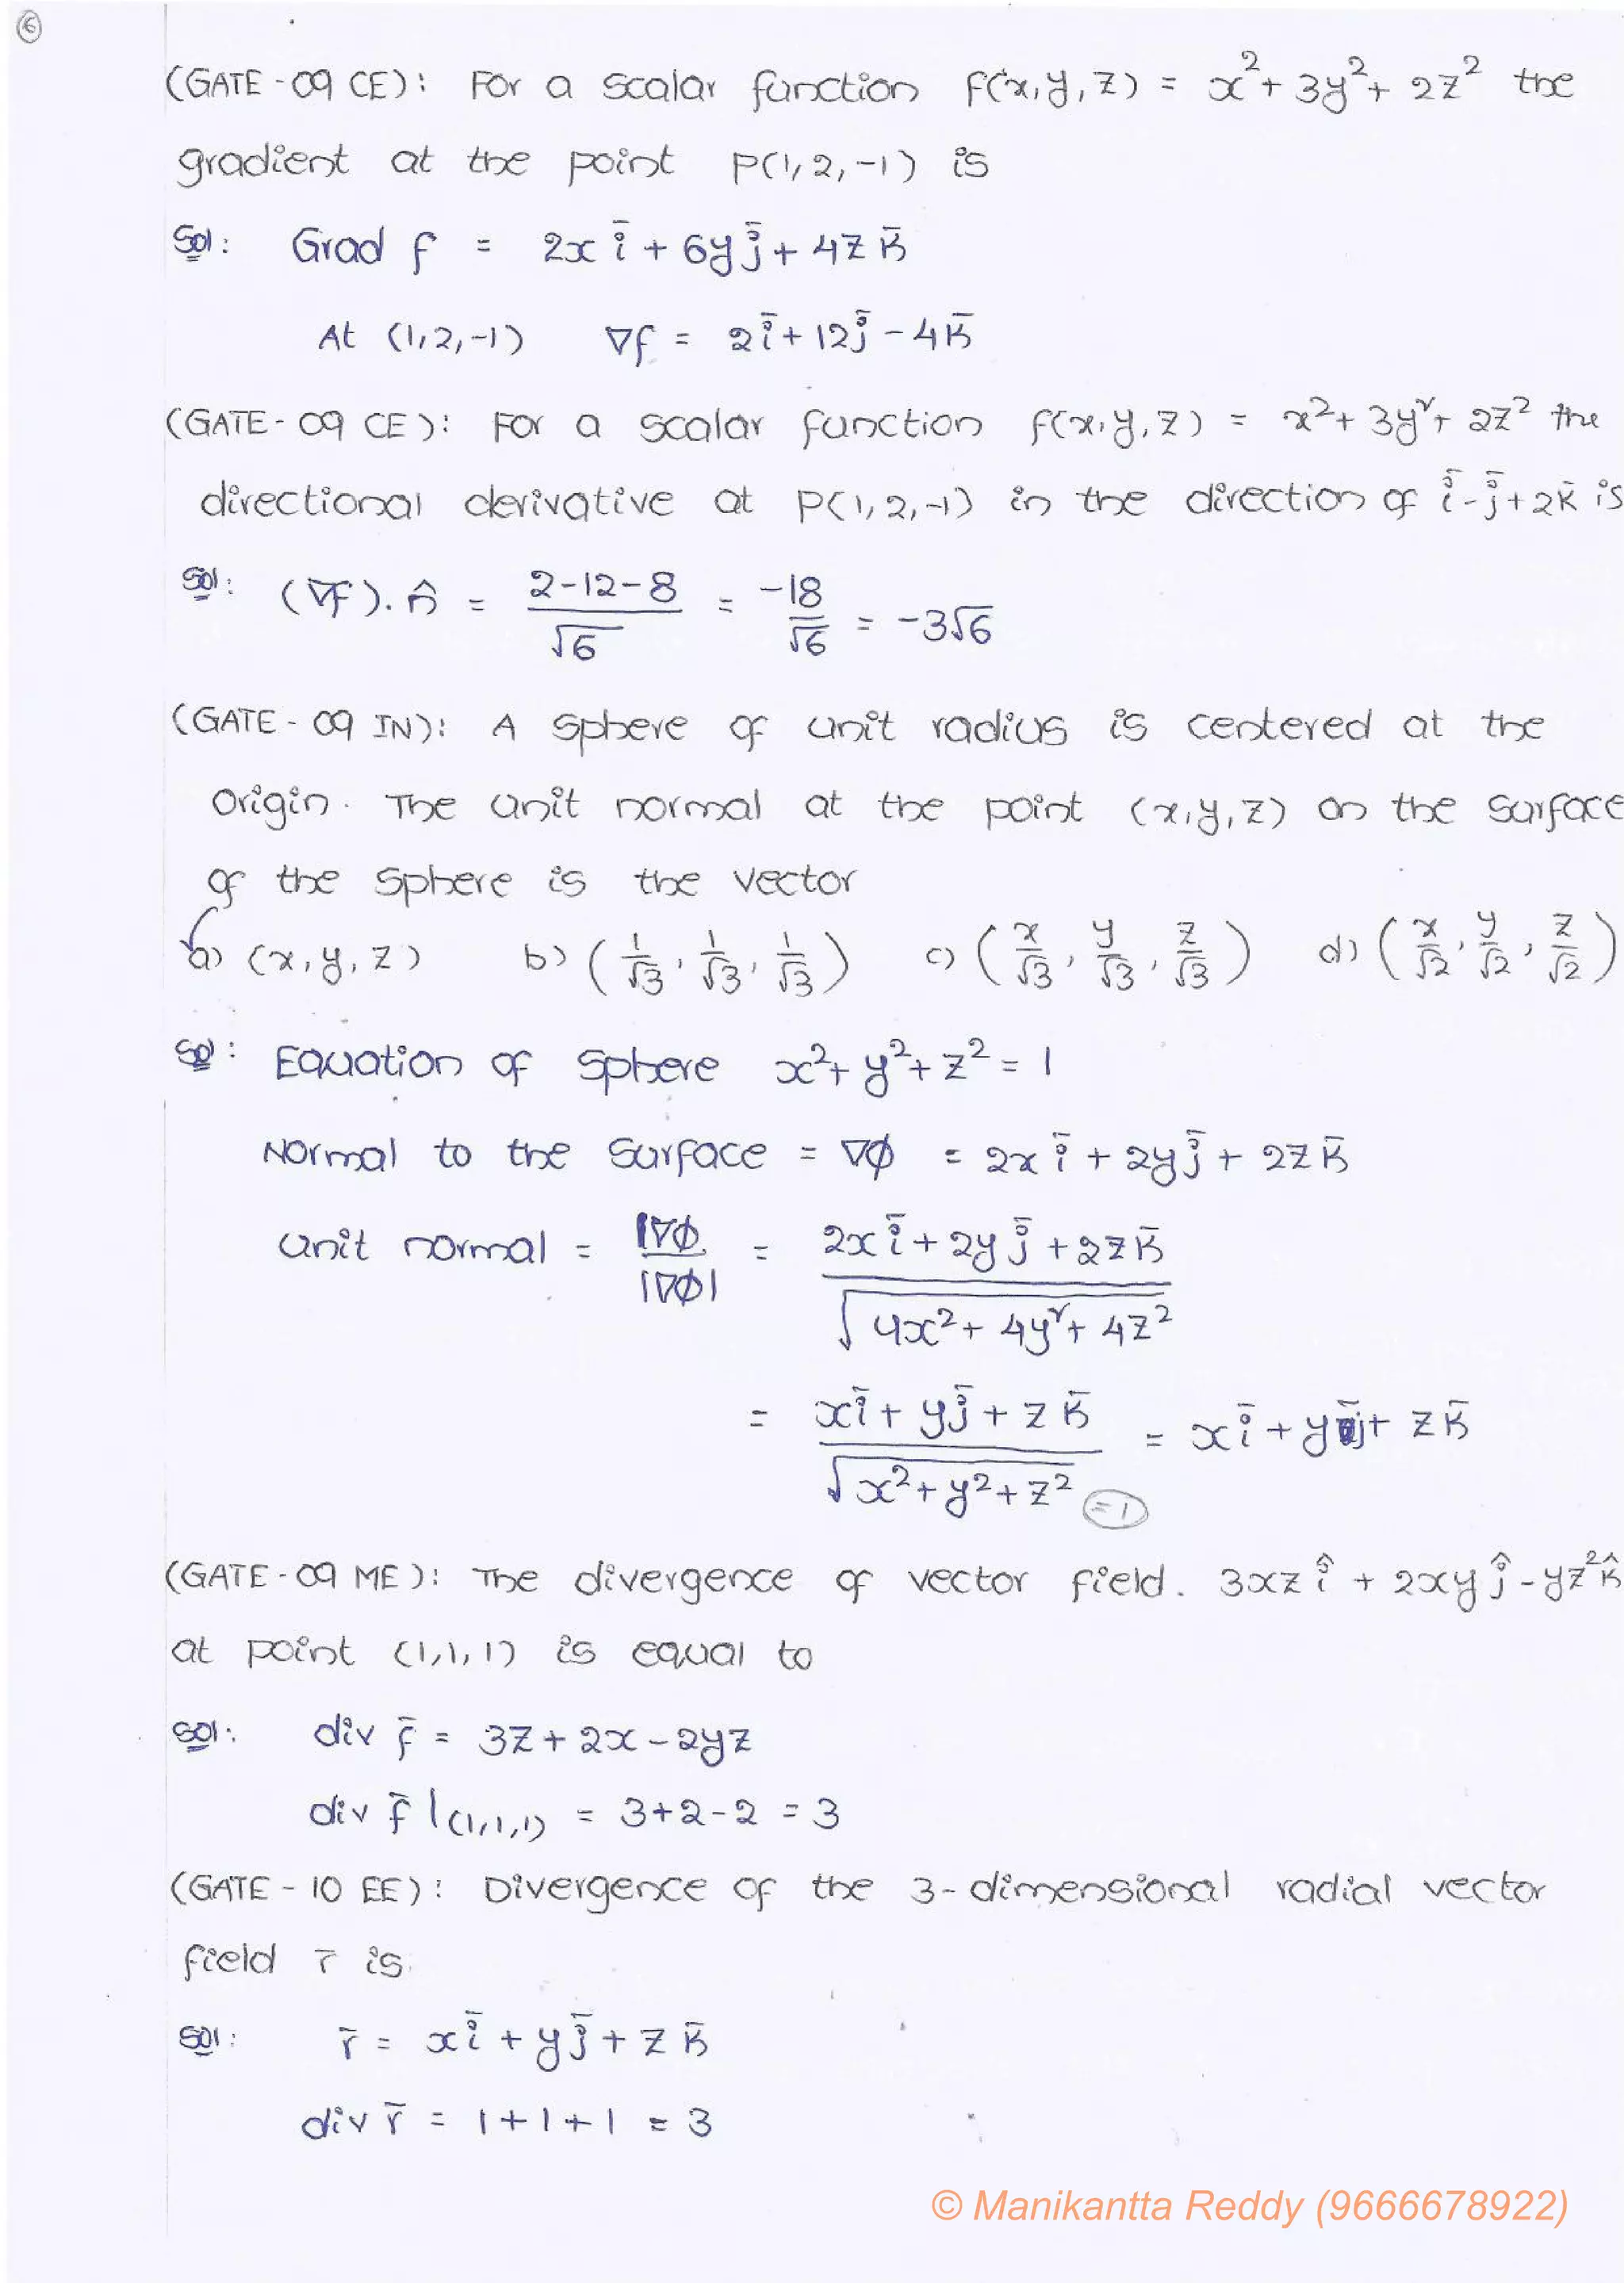 6
(GATE - 09 CE): For a scalar function f(x, y, z) = x² + 3y² + 2z² the
gradient at the point P(1, 2, -1) is
Sol: Grad f = 2x ī + 6y j̄ + 4z k̄
At (1, 2, -1) ∇f = 2ī + 12j̄ - 4k̄
(GATE - 09 CE): For a scalar function f(x, y, z) = x² + 3y² + 2z² the
directional derivative at P(1, 2, -1) in the direction of ī - j̄ + 2k̄ is
Sol: (∇f). n̂ = (2-12-8)/√6 = -18/√6 = -3√6
(GATE - 09 IN): A sphere of unit radius is centered at the
origin. The unit normal at the point (x, y, z) on the surface
of the sphere is the vector
a) (x, y, z) b) (1/√3, 1/√3, 1/√3) c) (x/√3, y/√3, z/√3) d) (x/√2, y/√2, z/√2)
Sol: Equation of sphere x² + y² + z² = 1
Normal to the surface = ∇φ = 2x ī + 2y j̄ + 2z k̄
Unit normal = ∇φ/|∇φ| = (2x ī + 2y j̄ + 2z k̄)/√(4x² + 4y² + 4z²)
= (xī + yj̄ + z k̄)/√(x² + y² + z²) =1 = x ī + y j + z k̄
(GATE - 09 ME): The divergence of vector field. 3xz î + 2xy ĵ - yz² k̂
at point (1, 1, 1) is equal to
Sol: div f̄ = 3z + 2x - 2yz
div f̄ |(1,1,1) = 3+2-2 = 3
(GATE - 10 EE): Divergence of the 3-dimensional radial vector
field r̄ is
Sol: r̄ = x ī + y j̄ + z k̄
div r̄ = 1+1+1 = 3
© Manikantta Reddy (9666678922)